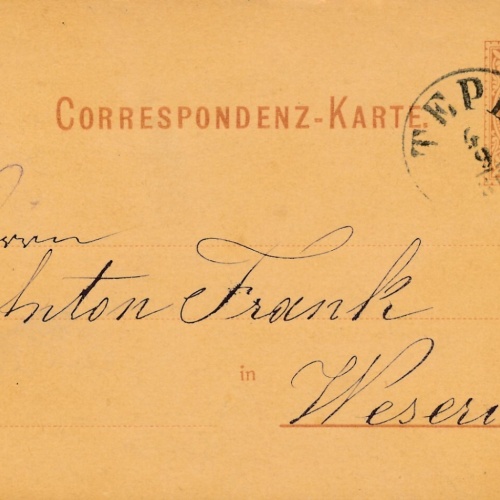 CORRESPONDENZ-KARTE.
TEP
69
Herrn
Anton Frank
in
Weseri